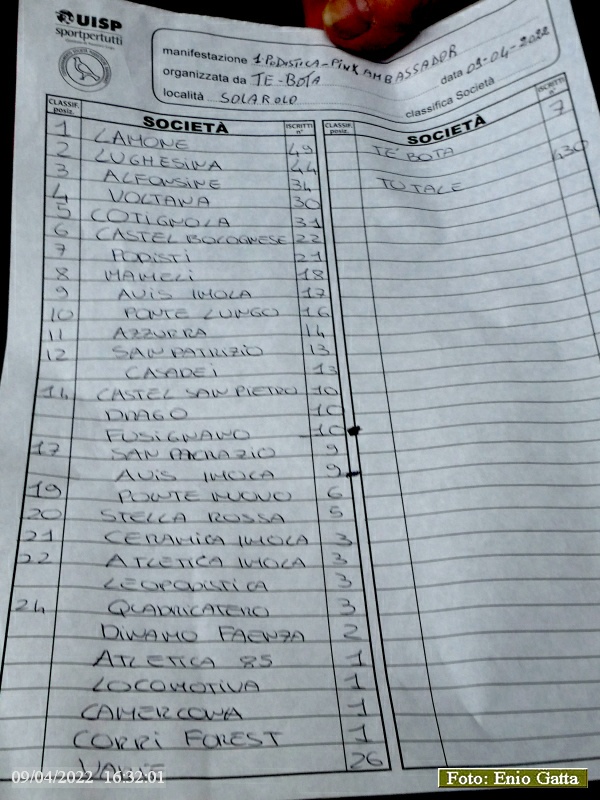 UISP
sportpertutti
manifestazione 1 PODISTICA-PINK AMBASSADOR
organizzata da TE-BOTA data 09-04-2022
località SOLAROLO classifica Società
CLASSIF. posiz. SOCIETÀ ISCRITTI n°
1 LAMONE 49
2 LUGHESINA 44
3 ALFONSINE 34
4 VOLTANA 30
5 COTIGNOLA 31
6 CASTEL BOLOGNESE 22
7 PODISTI 21
8 MAMELI 18
9 AVIS IMOLA 17
10 PONTE LUNGO 16
11 AZZURRA 14
12 SAN PATRIZIO 13
CASADEI 13
14 CASTEL SAN PIETRO 10
DRAGO 10
FUSIGNANO 10
17 SAN PANCRAZIO 9
AVIS IMOLA 9
19 PONTE NUOVO 6
20 STELLA ROSSA 5
21 CERAMICA IMOLA 3
22 ATLETICA IMOLA 3
LEOPODISTICA 3
24 QUADRILATERO 3
DINAMO FAENZA 2
ATLETICA 85 1
LOCOMOTIVA 1
1
CORRI FOREST 1
VARIE 26
CLASSIF. posiz. SOCIETÀ ISCRITTI n°
TE' BOTA 7
TOTALE 430
09/04/2022 16:32:01
Foto: Enio Gatta